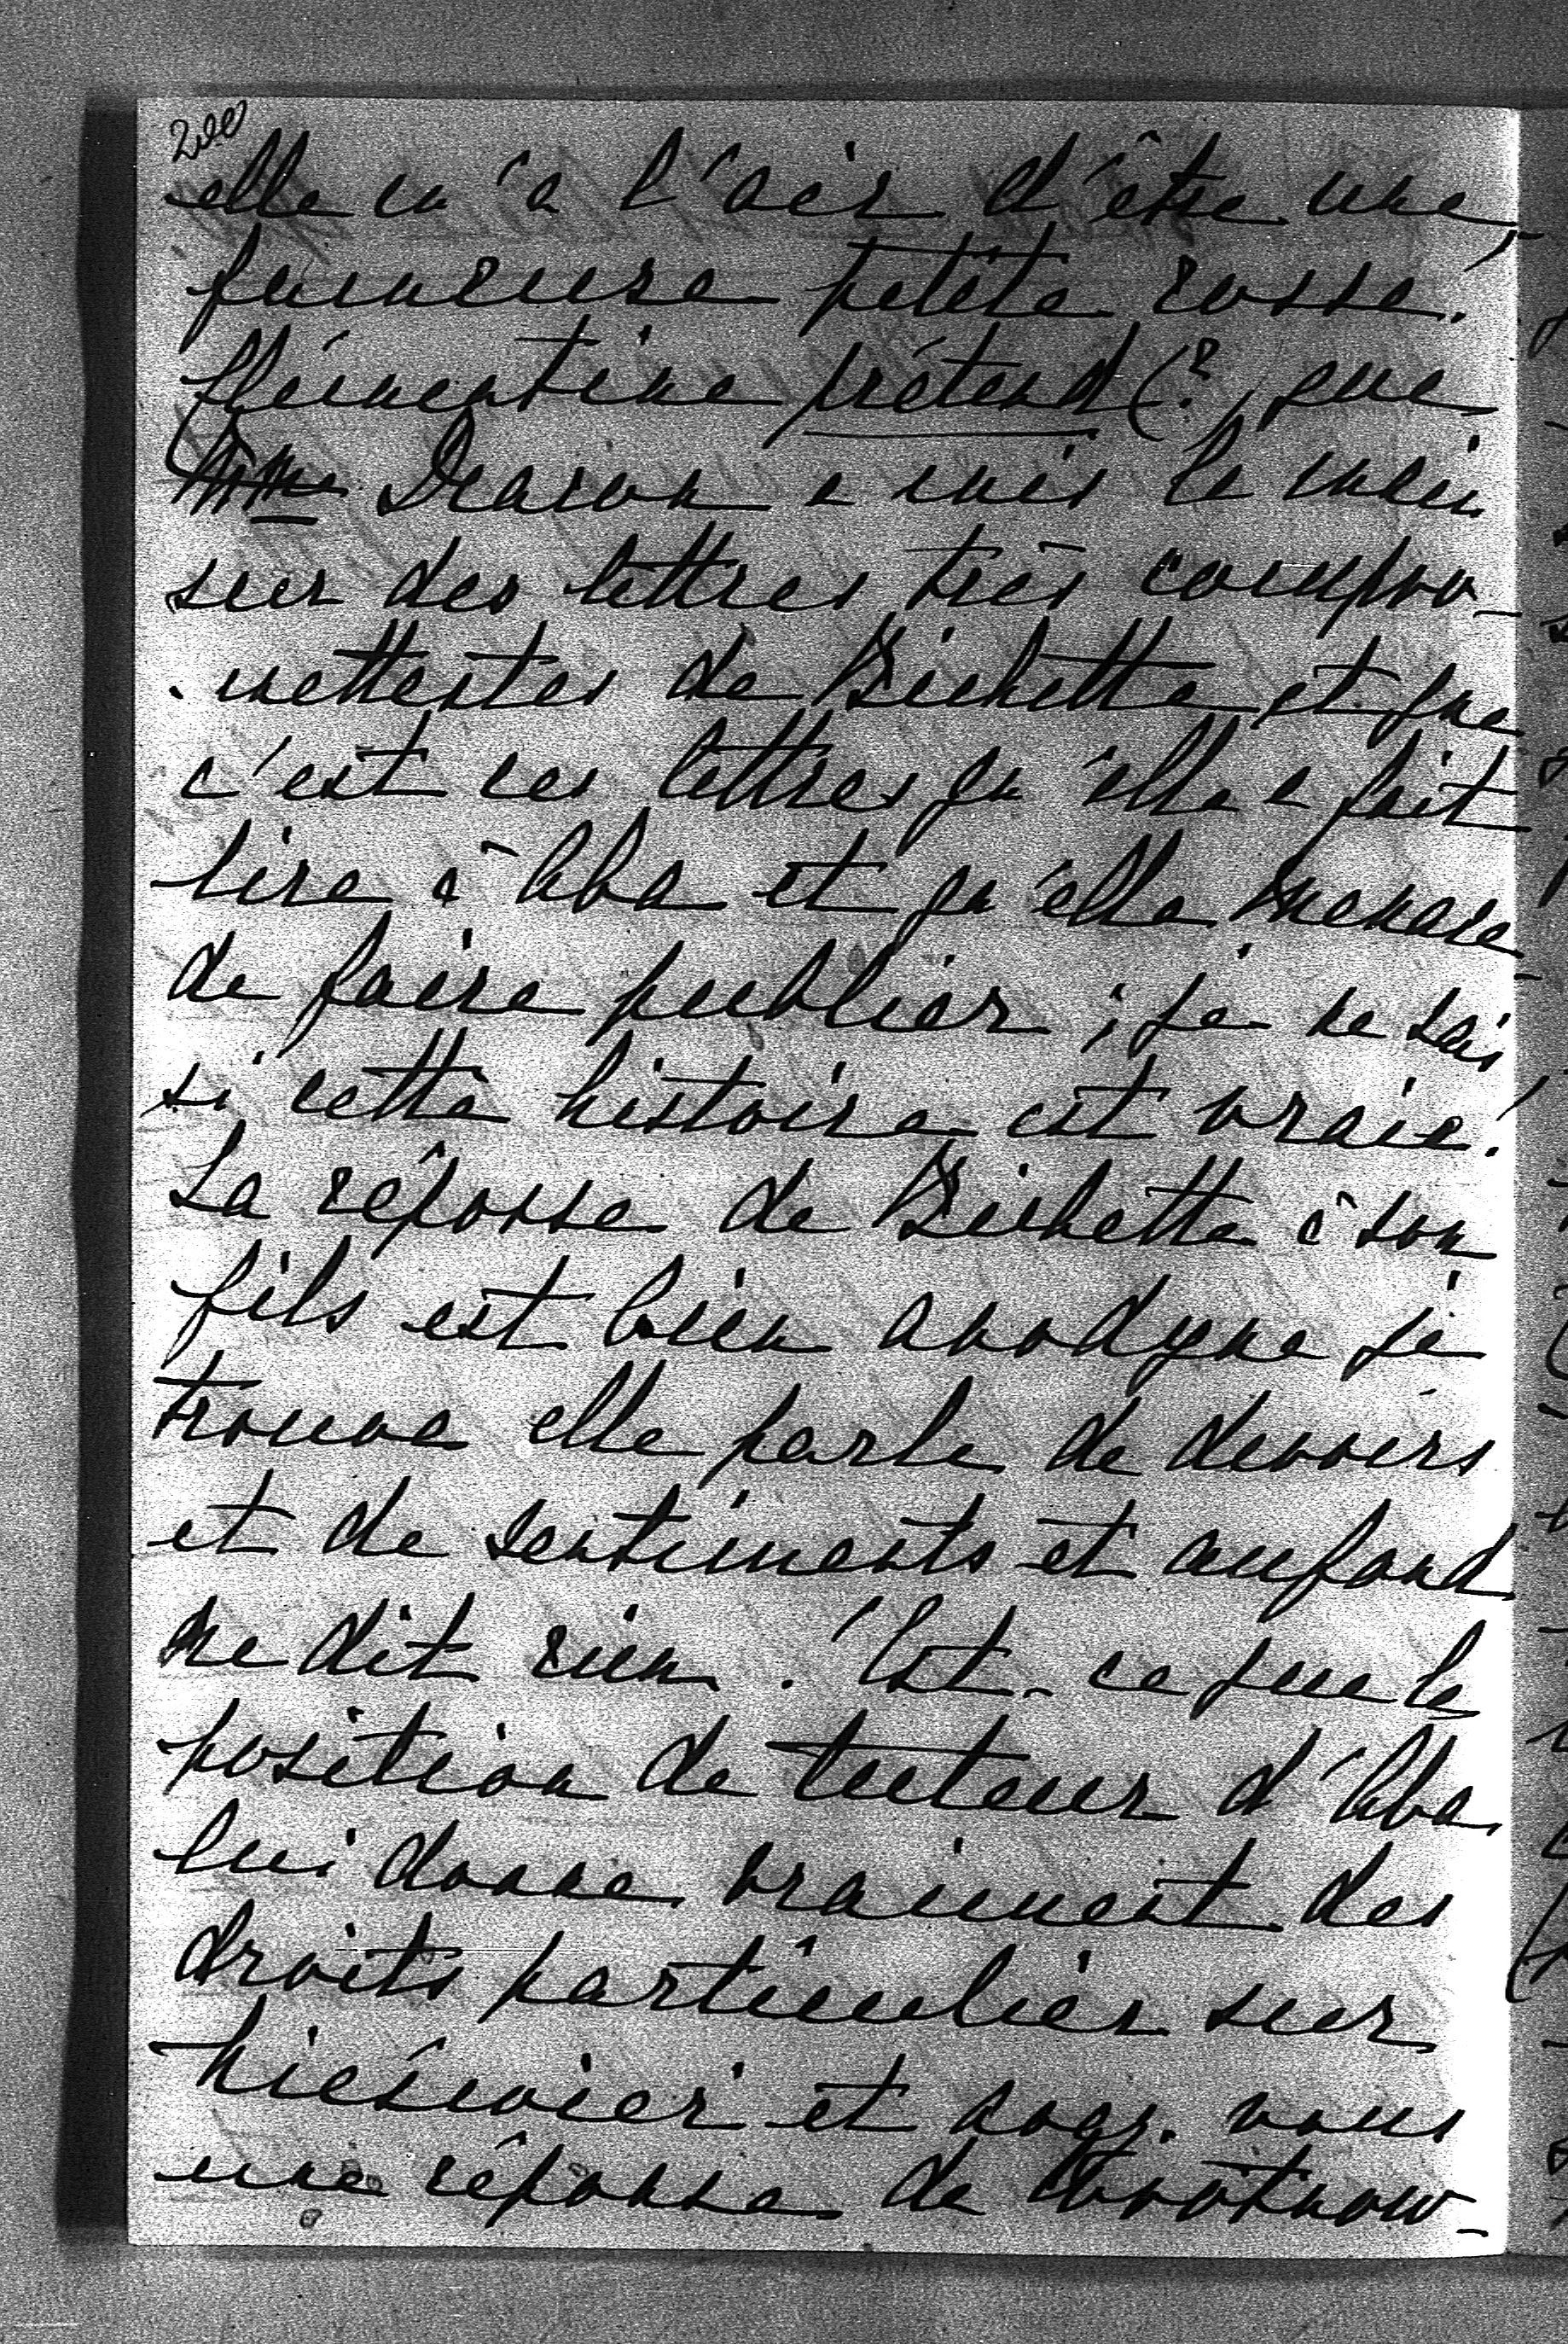 elle m'a l'air d'être une
fameuse petite rosse!
Clémentine prétend (? que
Mme Dracon a mis la main
sur des lettres très compro-
mettantes de Bichette et que
c'est ces lettres qu'elle a fait
lire à Aba et qu'elle menace
de faire publier; je ne sais
si cette histoire est vraie!
La réponse de Bichette à son
fils est bien anodyne je
trouve elle parle de devoirs
et de sentiments et au fond
ne dit rien. Est-ce que la
position de tuteur d'Aba
lui donne vraiment des
droits particulier sur
Nieświerz et avez-vous
une réponse de